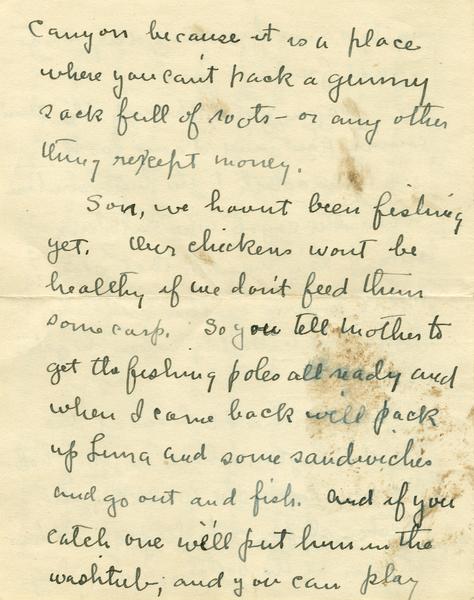 Canyon because it is a place
where you can't pack a gunny
sack full of roots - or any other
thing except money.
Son, we havnt been fishing
yet. Our chickens wont be
healthy if we don't feed them
some carp. So you tell Mother to
get the fishing poles all ready and
when I come back will pack
up Lima and some sandwiches
and go out and fish. And if you
catch one we'll put him in the
washtub, and you can play